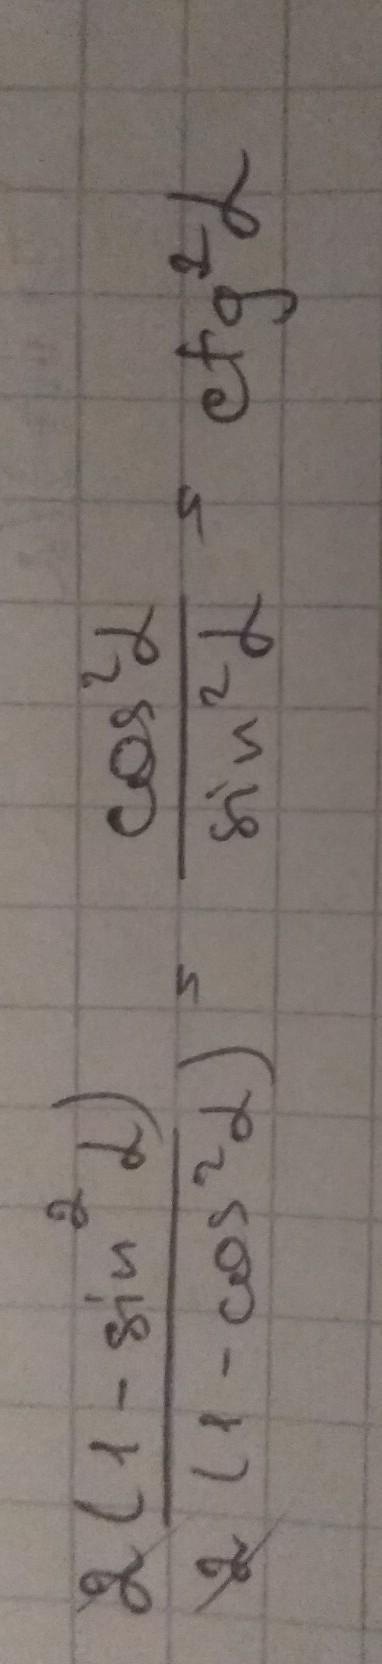 2(1 - sin²α) / 2(1 - cos²α) = cos²α / sin²α = ctg²α